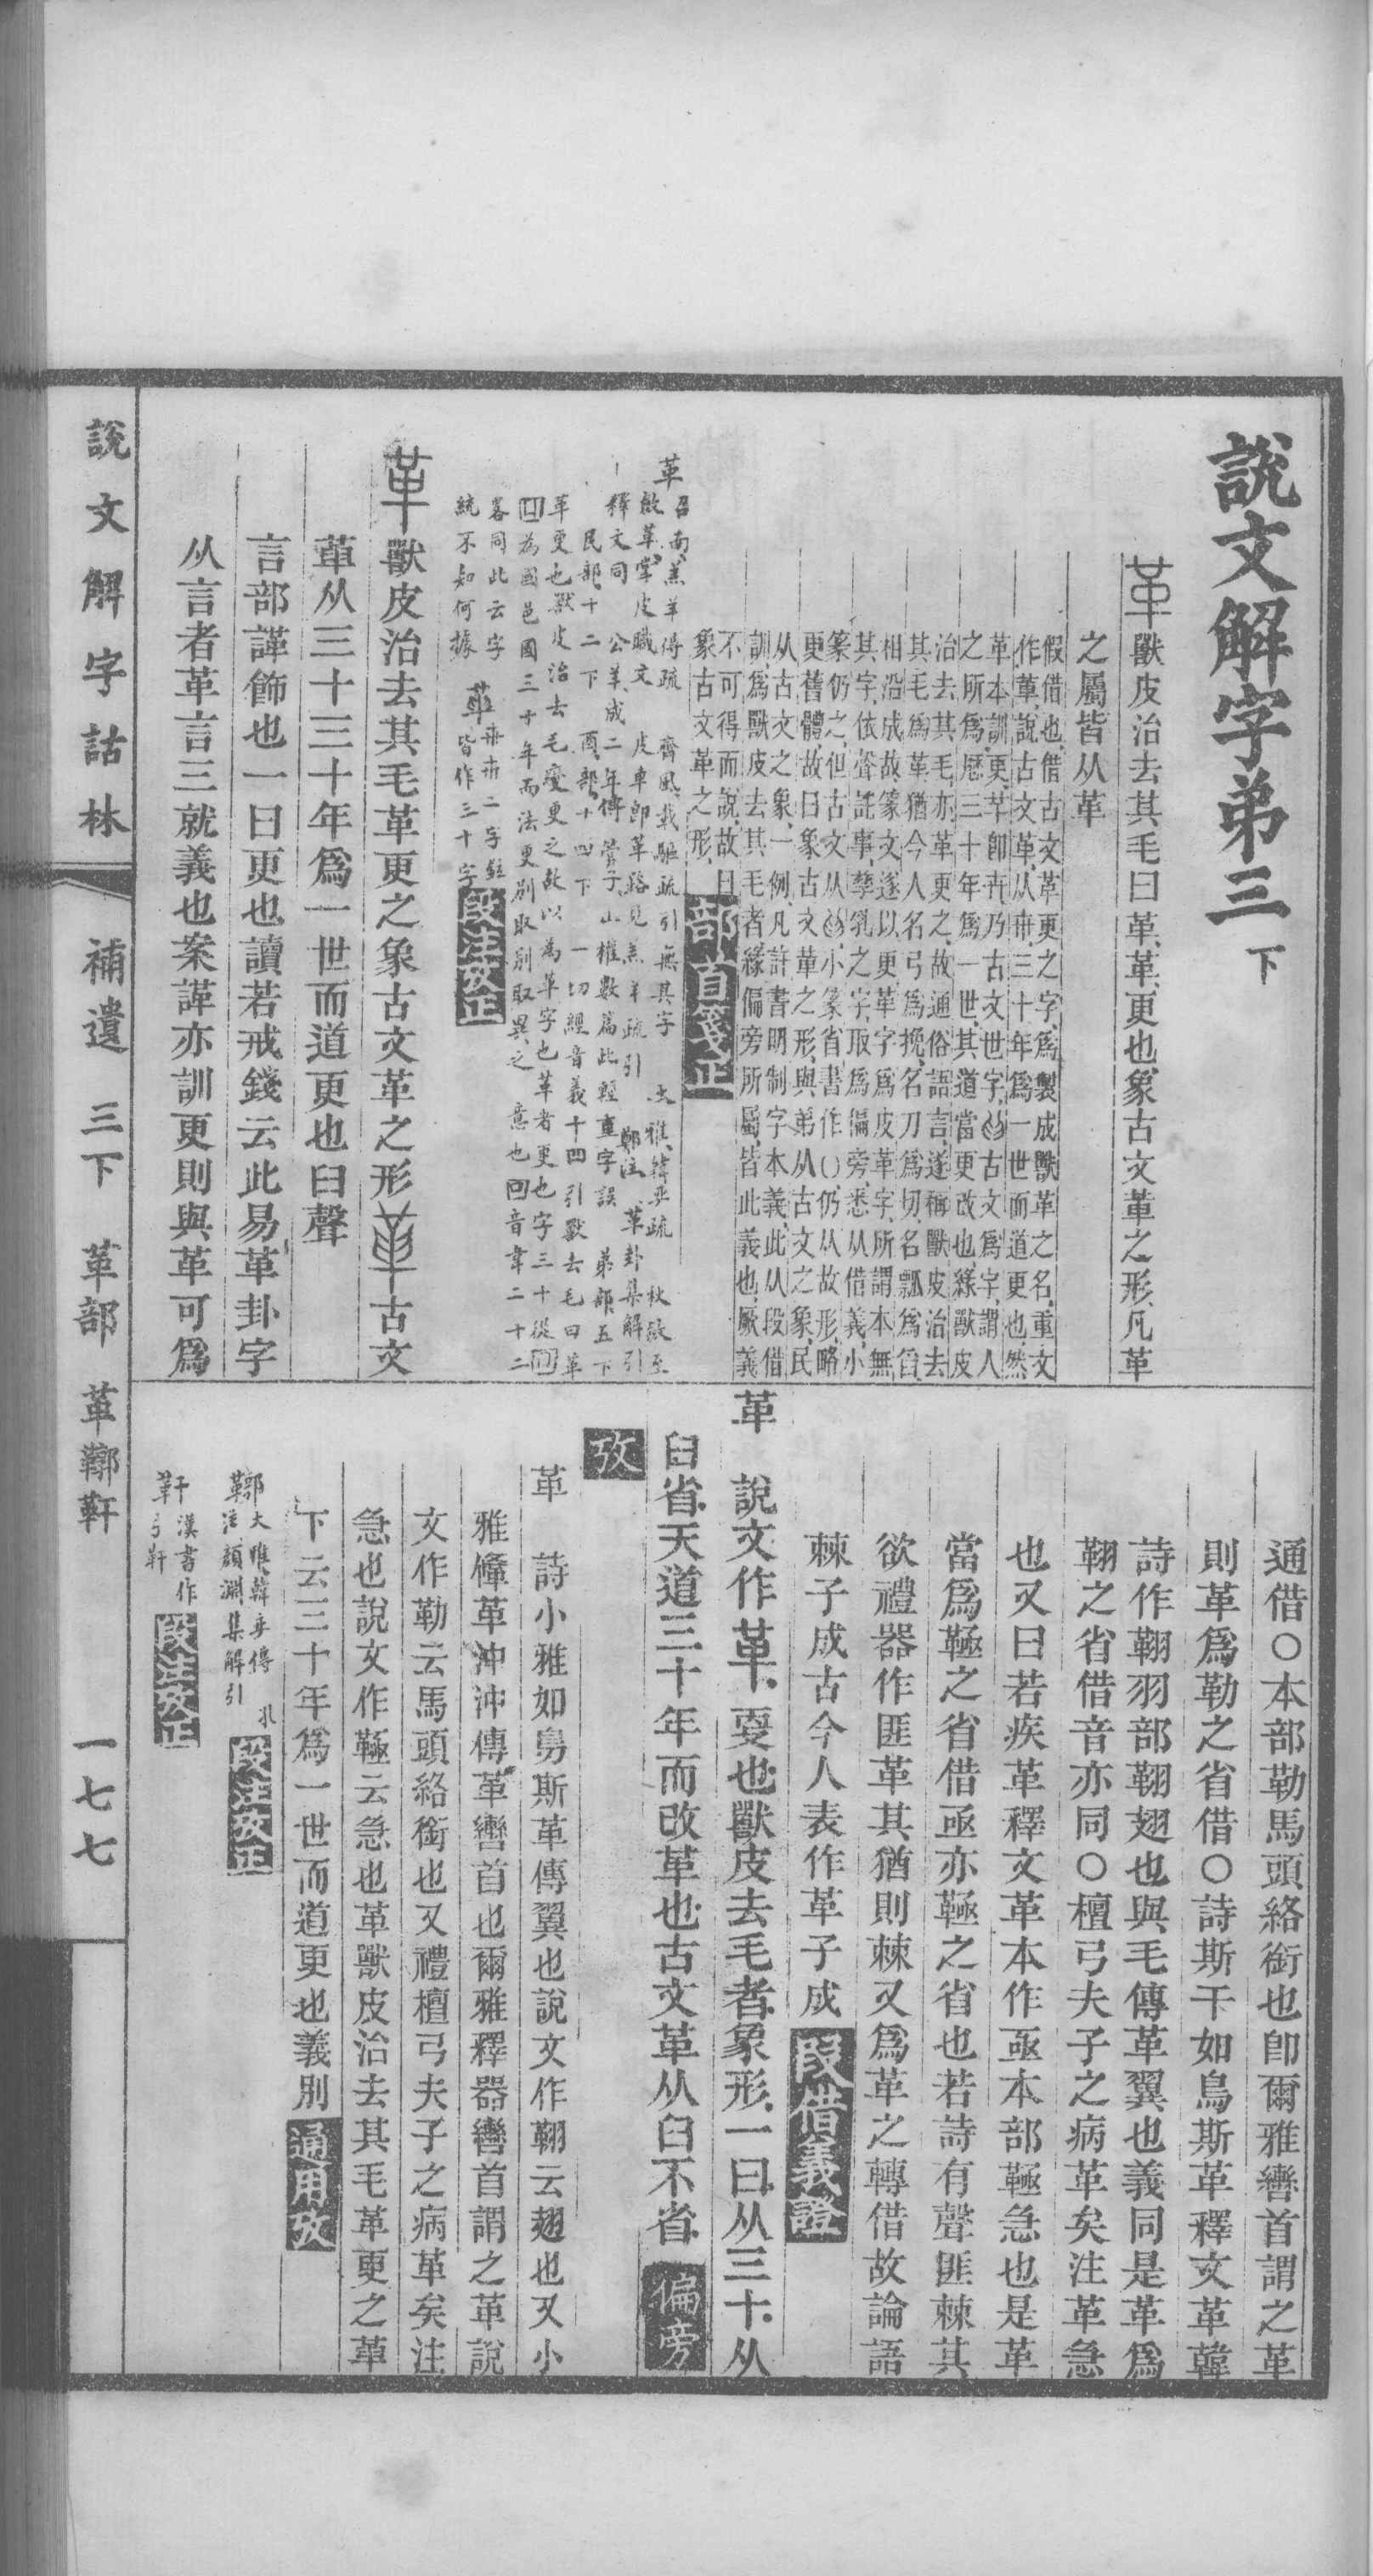 說文解字弟三下
革獸皮治去其毛曰革革更也象古文革之形凡革
之屬皆从革
假借也借古文革更之字爲製成獸革之名重文
作革說古文革从卅三十年爲一世而道更也然
革本訓更卒卽卉乃古文世字𦥑古文爲字謂人
之所爲歷三十年爲一世其道當更改也緣獸皮
治去其毛亦革更之故通俗語言遂稱獸皮治去
其毛爲革猶今人名弓爲挽名刀爲切名瓢爲舀
相沿成故篆文遂以更革字爲皮革字所謂本無
其字依聲託事孳乳之字取爲偏旁悉从借義小
篆仍之但古文从𦥑小篆省書作()仍从故形略
更舊體故曰象古文革之形與弟从古文之象民
从古文之象一例凡許書明制字本義此从段借
訓爲獸皮去其毛者緣偏旁所屬皆此義也厥義
不可得而說故曰
象古文革之形部首箋正
革召南羔羊傳疏 齊風載驅疏引無其字 大雅韓奕疏 秋啟至
啟革掌皮職文 皮車卽革路見羔羊疏引 鄭注 革卦集解引
釋文同 公羊成二年傳管子山權數篇此輕重字誤 弟部五下
民部十二下 酉部十四下 一切經音義十四引獸去毛曰革
革更也獸皮治去毛變更之故以爲革字也革者更也字三十從口
口爲國邑國三十年而法更別取別取異之意也口音韋二十二
畧同此云字
統不知何據 革冊卅二字鉉
皆作三十字段注攷正
革獸皮治去其毛革更之象古文革之形𠦶古文
革从三十三十年爲一世而道更也𦥑聲
言部諽飾也一曰更也讀若戒錢云此易革卦字
从言者革言三就義也案諽亦訓更則與革可爲
通借○本部勒馬頭絡銜也卽爾雅轡首謂之革
則革爲勒之省借○詩斯干如鳥斯革釋文革韓
詩作䩗羽部䩗翅也與毛傳革翼也義同是革爲
䩗之省借音亦同○檀弓夫子之病革矣注革急
也又曰若疾革釋文革本作亟本部䩯急也是革
當爲䩯之省借亟亦䩯之省也若詩有聲匪棘其
欲禮器作匪革其猶則棘又爲革之轉借故論語
棘子成古今人表作革子成段借義證
革 說文作革耎也獸皮去毛者象形一曰从三十从
𦥑省天道三十年而改革也古文革从𦥑不省偏旁
攷
革 詩小雅如鳥斯革傳翼也說文作䩗云翅也又小
雅鞗革沖沖傳革轡首也爾雅釋器轡首謂之革說
文作勒云馬頭絡銜也又禮檀弓夫子之病革矣注
急也說文作䩯云急也革獸皮治去其毛革更之革
下云三十年爲一世而道更也義別通用攷
鞹大雅韓奕傳 孔
注顏淵集解引 段注攷正
靬漢書作
弓靬 段注攷正
說文解字詁林 補遺 三下 革部 革鞹靬 一七七